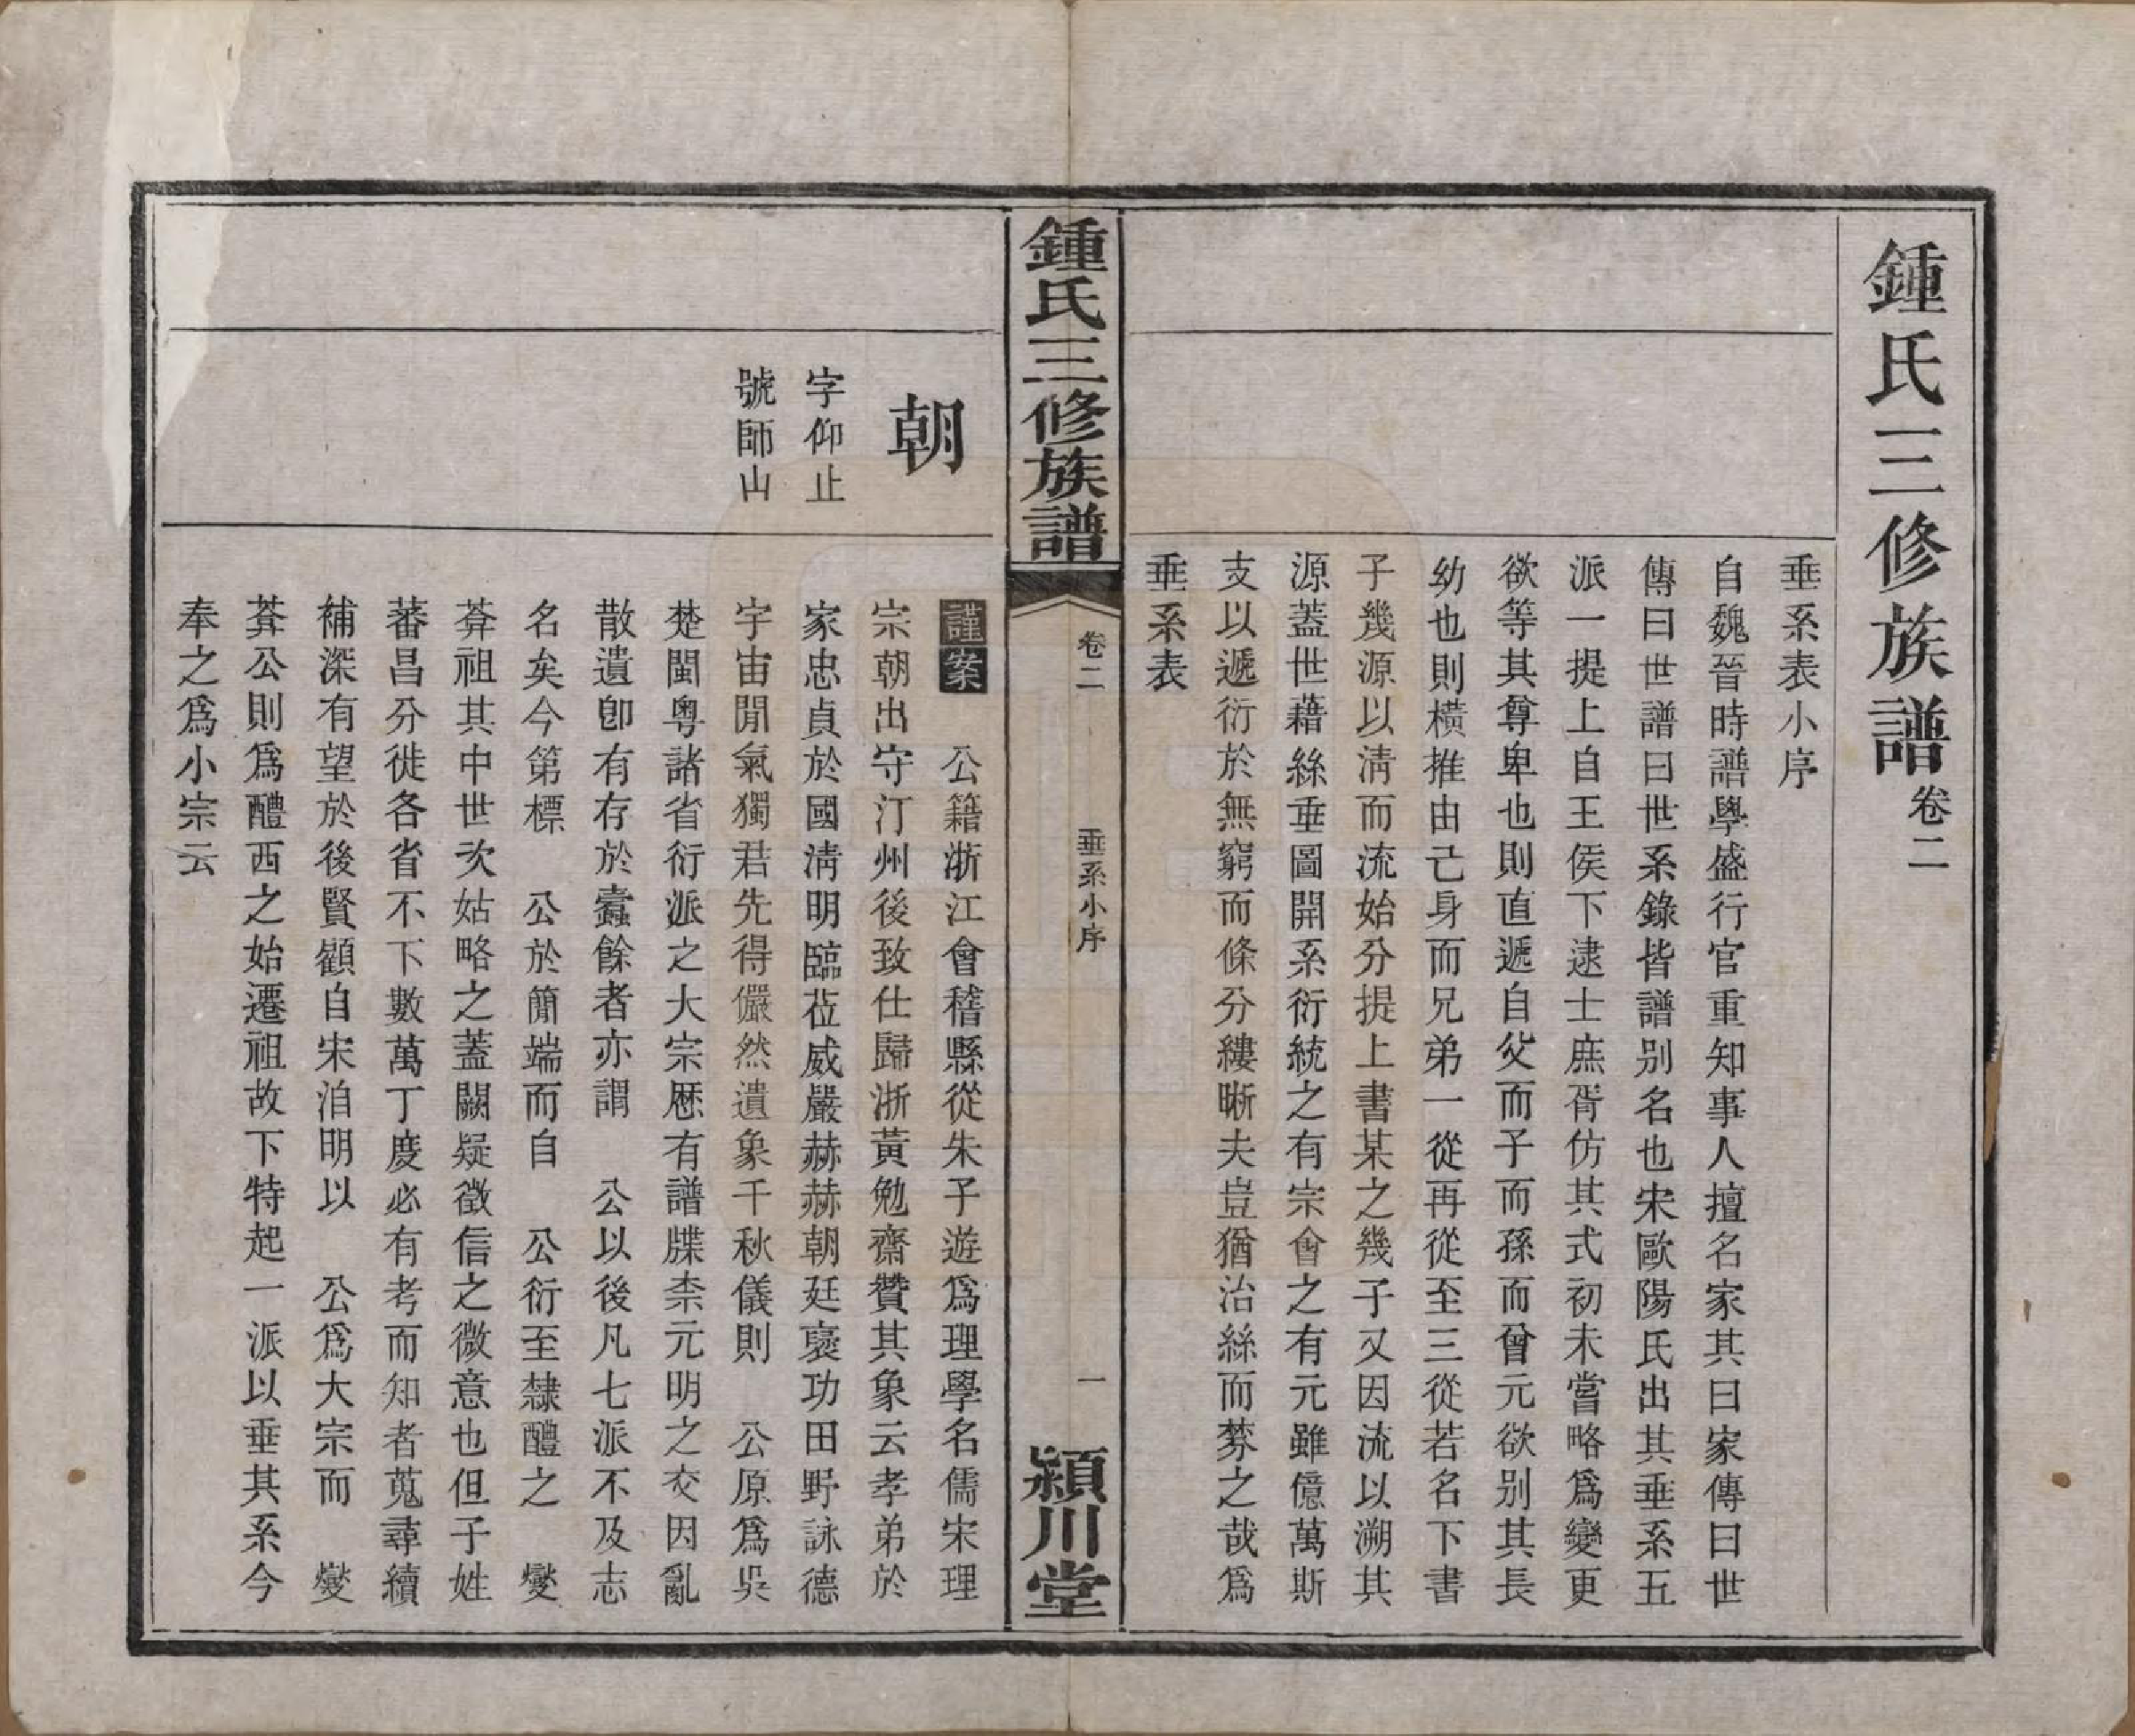 鍾氏三修族譜卷二
垂系表小序
自魏晉時譜學盛行官重知事人擅名家其曰家傳曰世
傳曰世譜曰世系錄皆譜別名也宋歐陽氏出其垂系五
派一提上自王侯下逮士庶胥仿其式初未嘗略爲變更
欲等其尊卑也則直遞自父而子而孫而曾元欲別其長
幼也則橫推由己身而兄弟一從再從至三從若名下書
子幾源以淸而流始分提上書某之幾子又因流以溯其
源蓋世藉絲垂圖開系衍統之有宗會之有元雖億萬斯
支以遞衍於無窮而條分縷晰夫豈猶治絲而棼之哉爲
垂系表
鍾氏三修族譜
卷二
垂系小序
一
潁川堂
朝
字仰止
號師山
謹案 公籍浙江會稽縣從朱子遊爲理學名儒宋理
宗朝出守汀州後致仕歸浙黃勉齋贊其象云孝弟於
家忠貞於國淸明臨莅威嚴赫赫朝廷襃功田野詠德
宇宙閒氣獨君先得儼然遺象千秋儀則 公原爲吳
楚閩粵諸省衍派之大宗歷有譜牒柰元明之交因亂
散遺卽有存於蠹餘者亦謂 公以後凡七派不及志
名矣今第標 公於簡端而自 公衍至隸醴之 燮
葬祖其中世次姑略之蓋闕疑徵信之微意也但子姓
蕃昌分徙各省不下數萬丁度必有考而知者蒐尋續
補深有望於後賢顧自宋洎明以 公爲大宗而 燮
葬公則爲醴西之始遷祖故下特起一派以垂其系今
奉之爲小宗云